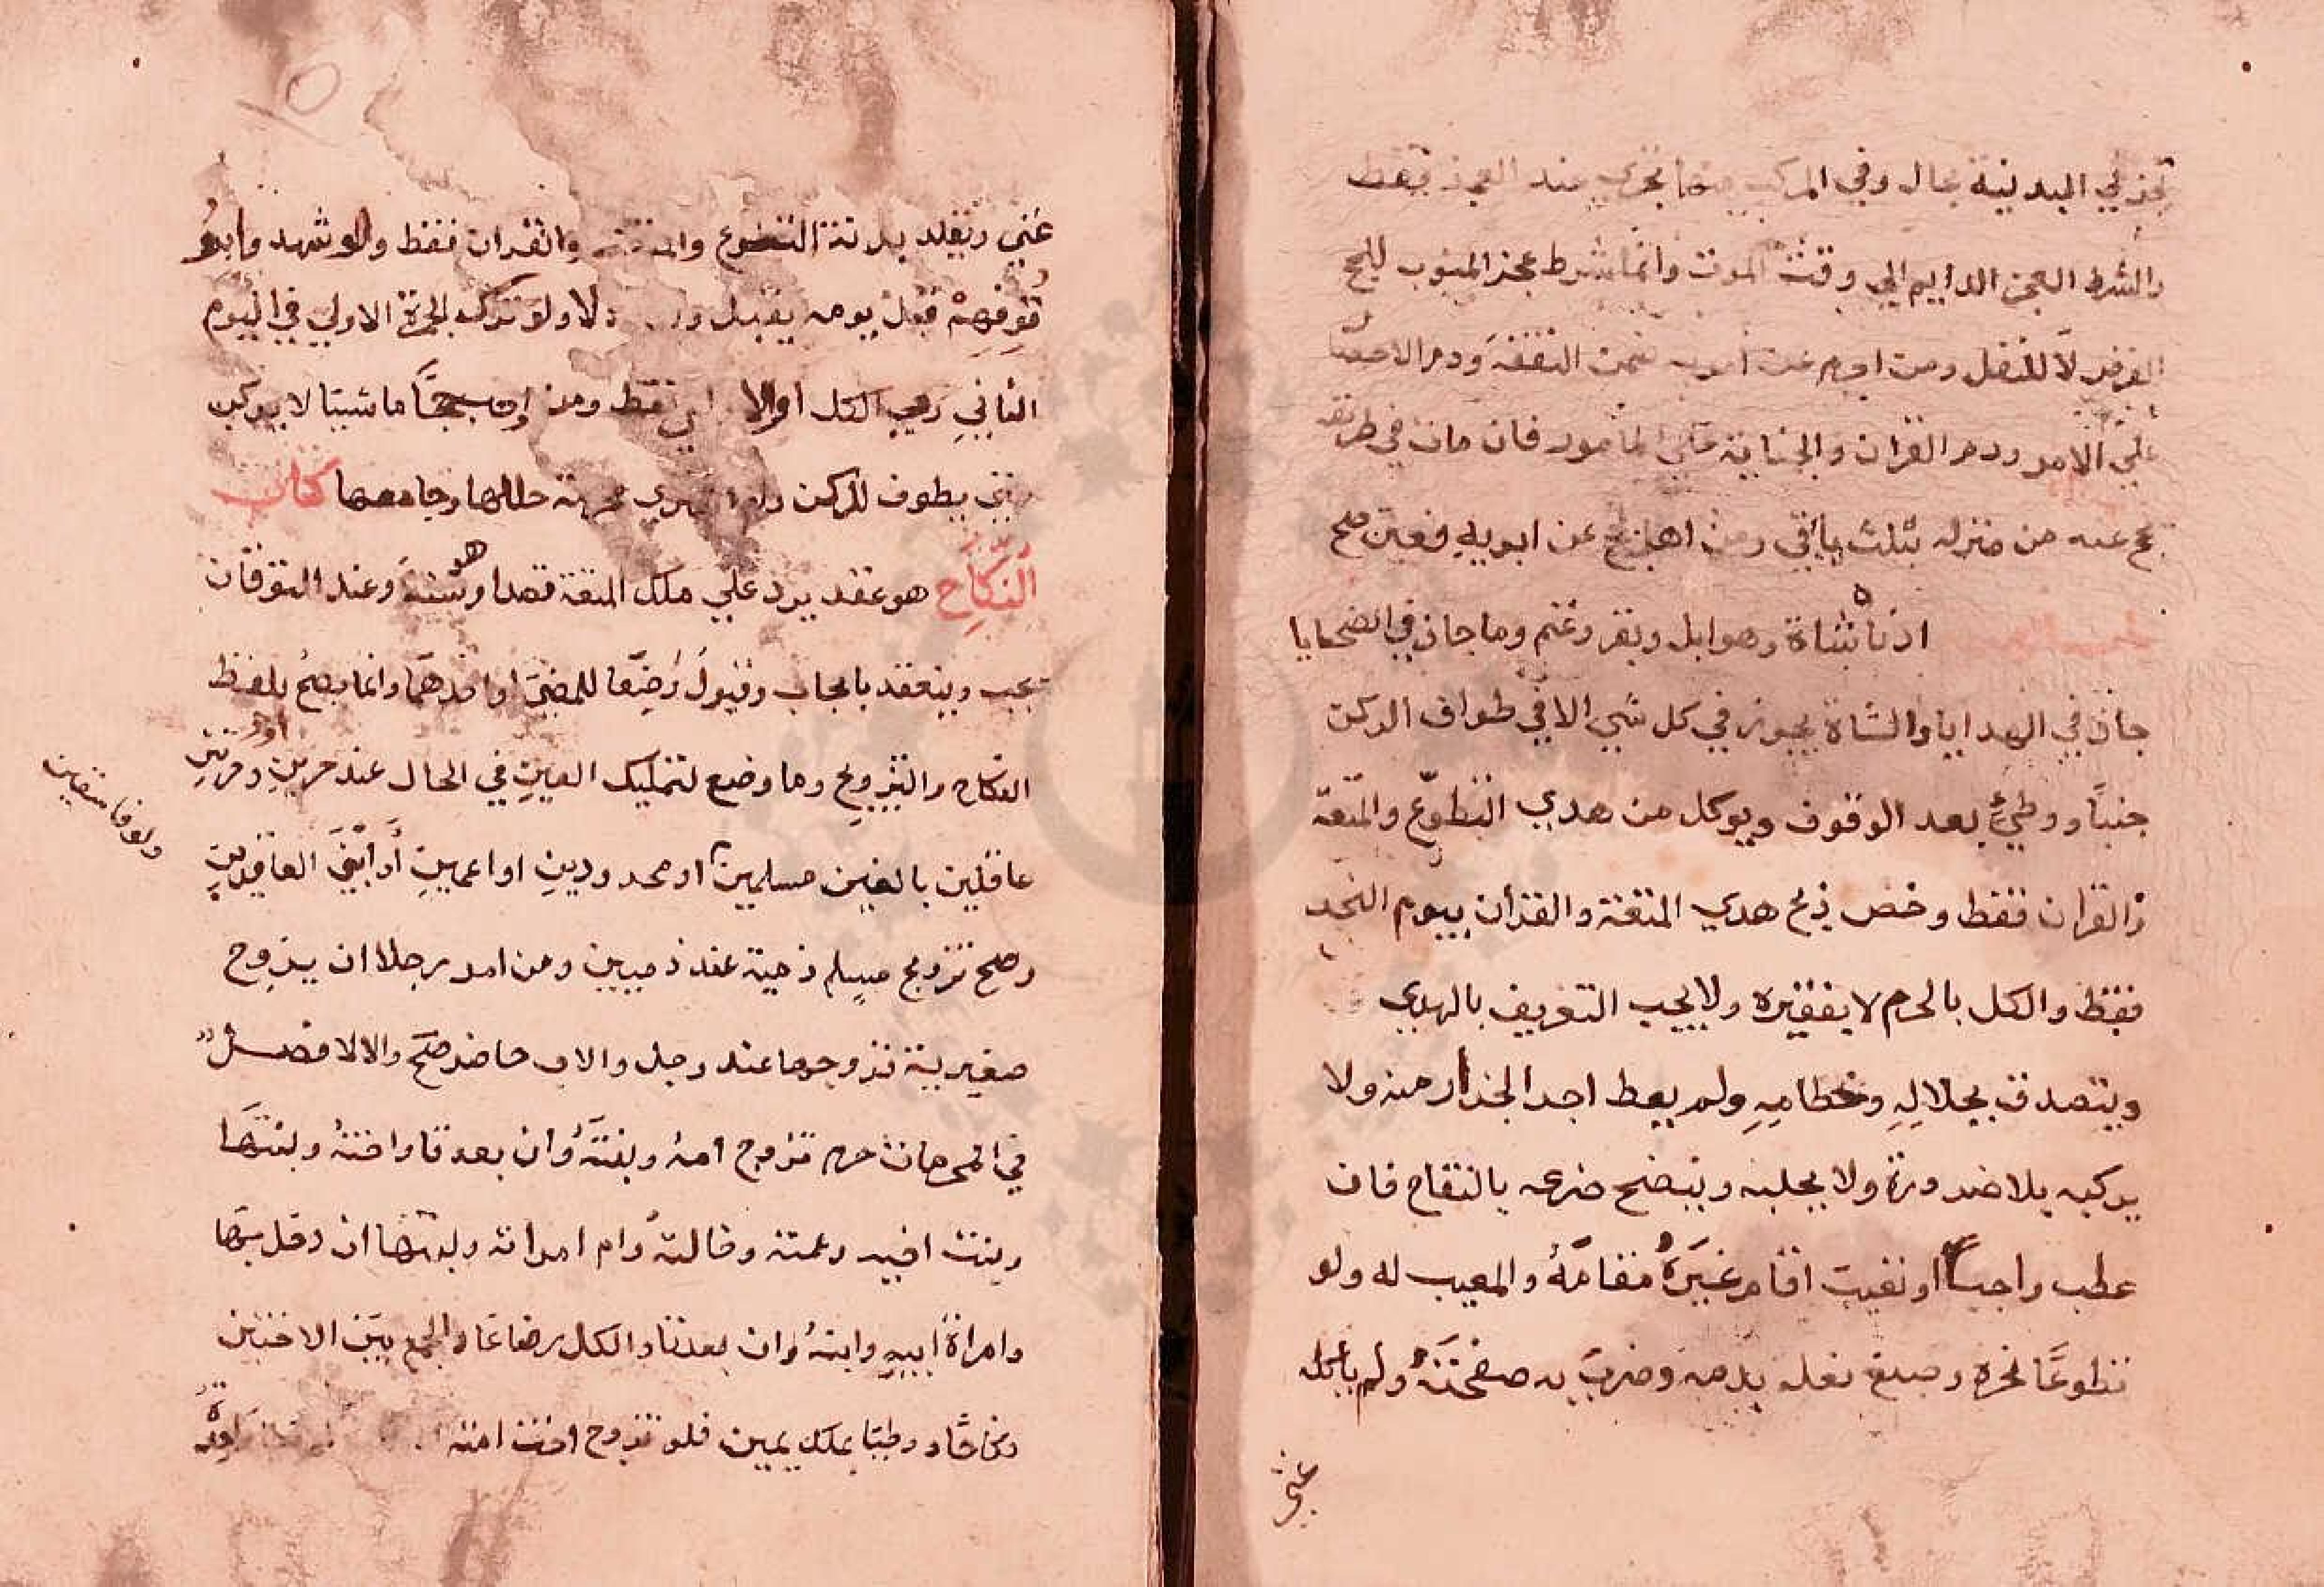 تجز في البدنية بحال وفي المركب منهما تجزي عند العجز فقط
والشرط العجز الدايم الي وقت الموت وانما شرط عجز المنوب للحج
الفرض لا للنفل ومن احرم عن امريه ضمن النفقة ودم الاحصار
علي الامر ودم القران والجناية علي المامور فان مات في طريقه
يحج عنه من منزله بثلث ما بقي ومن اهل بحج عن ابويه فعين صح
ادناه شاة وهو ابل وبقر وغنم وما جاز في الضحايا
جاز في الهدايا والشاة يجوز في كل شي الا في طواف الركن
جنبا ووطيء بعد الوقوف ويوكل من هدي التطوع والمتعة
والقران فقط وخص ذبح هدي المتعة والقران بيوم النحر
فقط والكل بالحرم لا بفقيره ولا يجب التعريف بالهدي
ويتصدق بجلاله وخطامه ولم يعط اجر الجزار منه ولا
يركبه بلا ضرورة ولا يحلبه وينضح ضرعه بالنقاح فان
عطب واجبا او تعيب اقام غيره مقامه والمعيب له ولو
تطوعا نحره وصبغ نعله بدمه وضرب به صفحته ولم ياكله
غني
غني وتقلد بدنة التطوع والمتعة والقران فقط ولو شهدوا
بوقوفهم قبل يومه يقبل ولا ولو ترك الجمرة الاولي في اليوم
الثاني رمي الكل او الاولي فقط ومن اوجب حجا ماشيا لا يركب
حتي يطوف للركن ولو اشتري محرمة حللها وجامعها كتاب
النكاح هو عقد يرد علي ملك المتعة قصدا وهو سنة وعند التوقان
يجب وينعقد بايجاب وقبول وضعا للمضي او احدهما وانما يصح بلفظ
النكاح والتزويج وما وضع لتمليك العين في الحال عند حرين او حر وحرتين
عاقلين بالغين مسلمين او محدودين او اعميين او ابني العاقدين
ولو فاسقين
وصح تزوج مسلم ذمية عند ذميين ومن امر رجلا ان يزوج
صغيرته فزوجها عند رجل والاب حاضر صح والا لا فصل
في المحرمات حرم تزوج امه وبنته وان بعدتا واخته وبنتها
وبنت اخيه وعمته وخالته وام امراته وبنتها ان دخل بها
وامراة ابيه وابنه وان بعدتا والكل رضاعا والجمع بين الاختين
نكاحا ووطيا بملك يمين فلو تزوج اخت امته